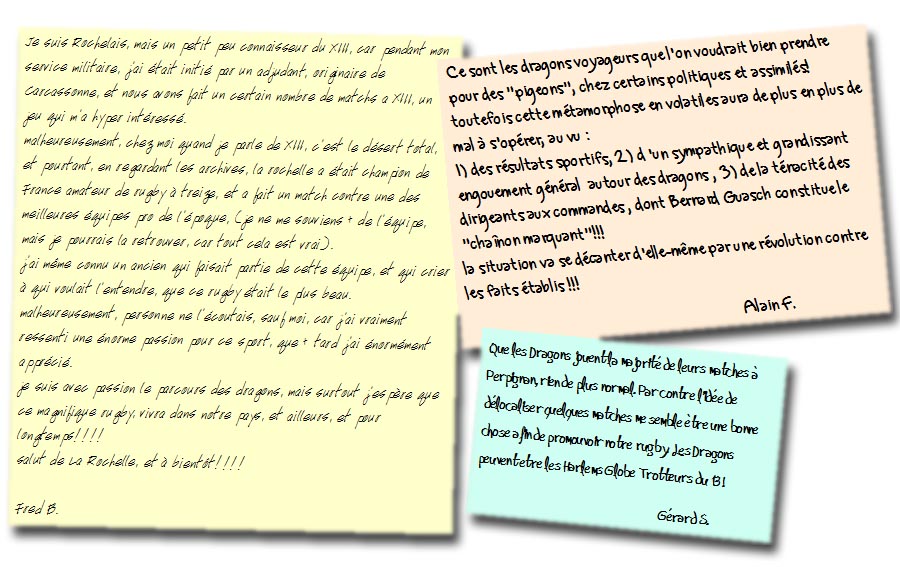 Je suis Rochelais, mais un petit peu connaisseur du XIII, car pendant mon
service militaire, j'ai était initié par un adjudant, originaire de
Carcassonne, et nous avons fait un certain nombre de matchs a XIII, un
jeu qui m'a hyper intéressé.
malheureusement, chez moi quand je parle de XIII, c'est le désert total,
et pourtant, en regardant les archives, la rochelle a était champion de
France amateur de rugby à treize, et a fait un match contre une des
meilleures équipes pro de l'époque, (je ne me souviens + de l'équipe,
mais je pourrais la retrouver, car tout cela est vrai).
j'ai même connu un ancien qui faisait partie de cette équipe, et qui crier
à qui voulait l'entendre, que ce rugby était le plus beau.
malheureusement, personne ne l'écoutais, sauf moi, car j'ai vraiment
ressenti une énorme passion pour ce sport, que + tard j'ai énormément
apprécié.
je suis avec passion le parcours des dragons, mais surtout j'espère que
ce magnifique rugby, vivra dans notre pays, et ailleurs, et pour
longtemps!!!!
salut de La Rochelle, et à bientôt!!!!
Fred B.
Ce sont les dragons voyageurs que l'on voudrait bien prendre
pour des "pigeons", chez certains politiques et assimilés!
toutefois cette métamorphose en volatiles aura de plus en plus de
mal à s'opérer, au vu :
1) des résultats sportifs, 2) d 'un sympathique et grandissant
engouement général autour des dragons , 3) de la téracité des
dirigeants aux commandes , dont Berrard Guasch constitue le
"chaînon marquant"!!!
la situation va se décanter d'elle-même par une révolution contre
les faits établis !!!
Alain F.
Que les Dragons jouent la majorité de leurs matches à
Perpignan, rien de plus normal. Par contre l'idée de
délocaliser quelques matches me semble être une bonne
chose afin de promouvoir notre rugby. Les Dragons
peuvent etre les Harlems Globe Trotteurs du 13!
Gérard S.